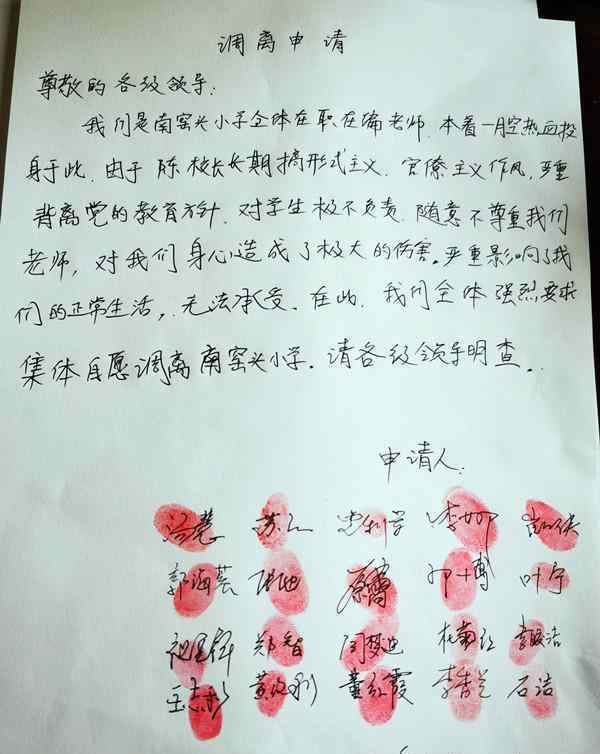 调离申请
尊敬的各级领导:
我们是南窑头小学全体在职在编老师.本着一腔热血投
身于此.由于陈校长长期搞形式主义.官僚主义作风,严重
背离党的教育方针.对学生极不负责.随意不尊重我们
老师,对我们身心造成了极大的伤害。严重影响了我
们的正常生活,.无法承受.在此.我们全体强烈要求
集体自愿调离南窑头小学.请各级领导明查。.
申请人:
冯慧 苏红 李娜
郭海荟 叶宁
郑智 闫梦迪 杜菊红
王志彬 董红霞 李雪兰 石洁